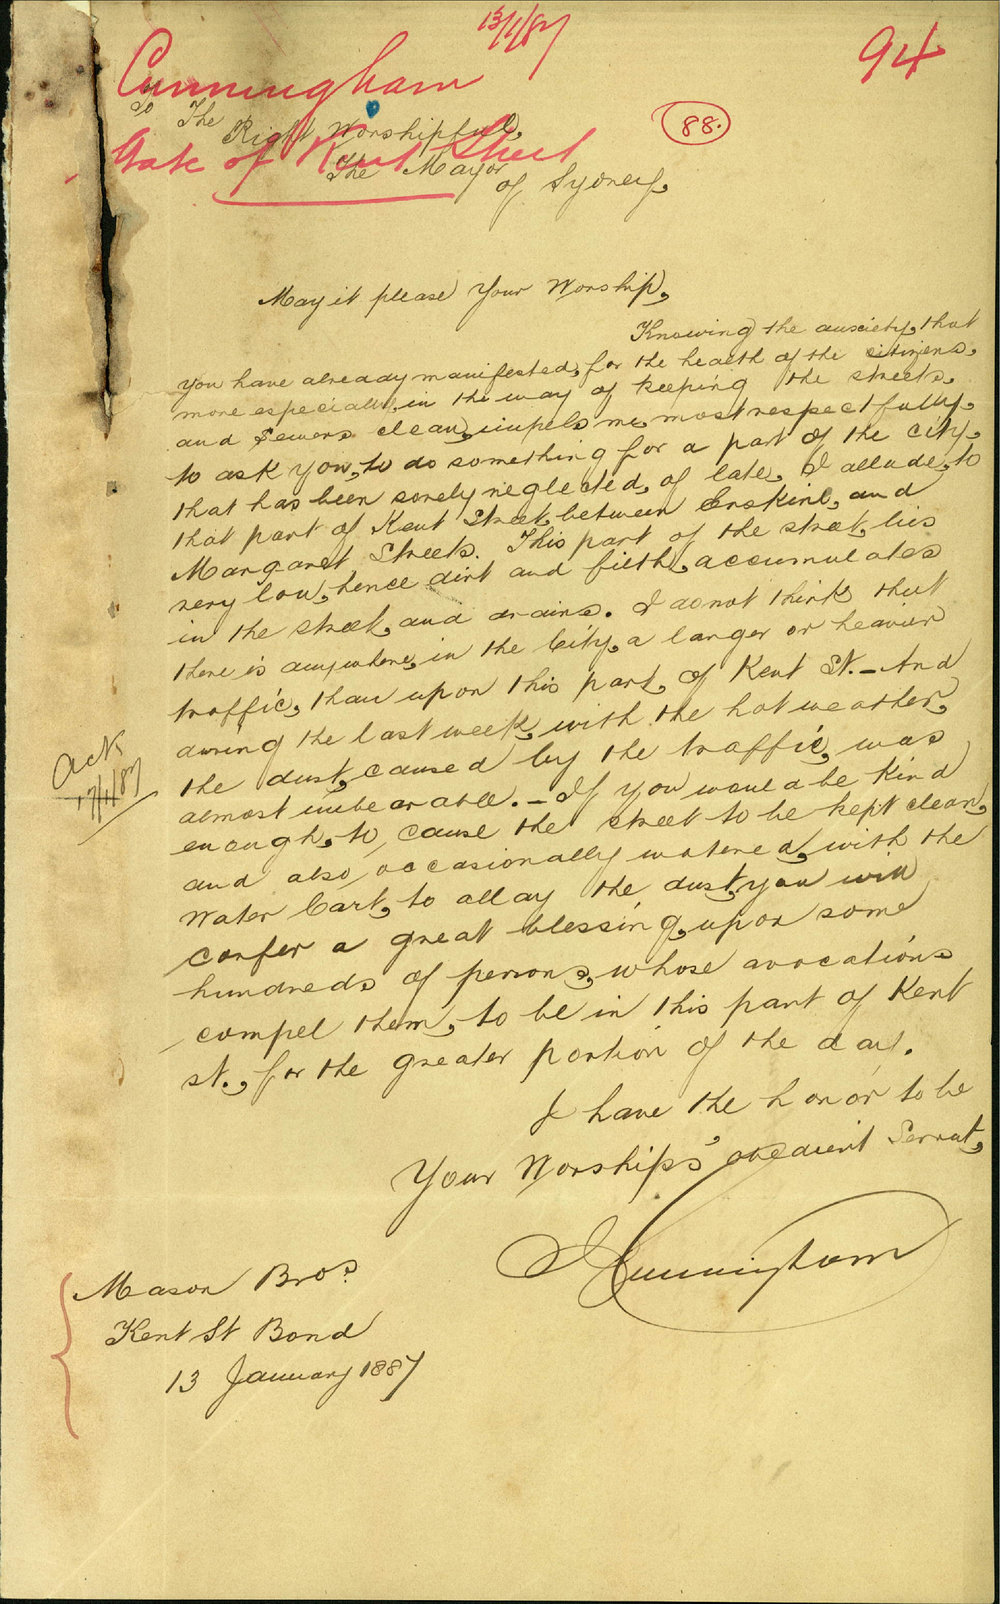 13/1/87
94
Cunningham
88.
State of Kent Street
To The
Right Worshipful,
The Mayor
of Sydney,
May it please Your Worship,
Knowing the anxiety, that
you have already manifested, for the health of the citizens,
more especially, in the way of keeping the streets,
and sewers clean, impels me, most respectfully,
to ask you, to do something for a part of the city,
that has been sorely neglected, of late, I allude, to
that part of Kent Street, between Erskine, and
Margaret Streets. This part of the street, lies
very low, hence dirt and filth, accumulates
in the street, and drains. I do not think that
there is anywhere, in the City, a larger or heavier
traffic, than upon this part, of Kent St. – And
during the last week, with the hot weather,
the dust, caused by the traffic, was
almost unbearable. – If you would be kind
enough, to, cause the street to be kept clean,
and also, occasionally watered, with the
Water Cart, to allay the dust, you will
confer a great blessing, upon some
hundreds of persons, whose avocations
compel them, to be in this part of Kent
St., for the greater portion of the day.
I have the honor to be
Your Worships' obedient Servat,
J Cunningham
Ack
17/1/87
Mason Bros.
Kent St Bond
13 January 1887